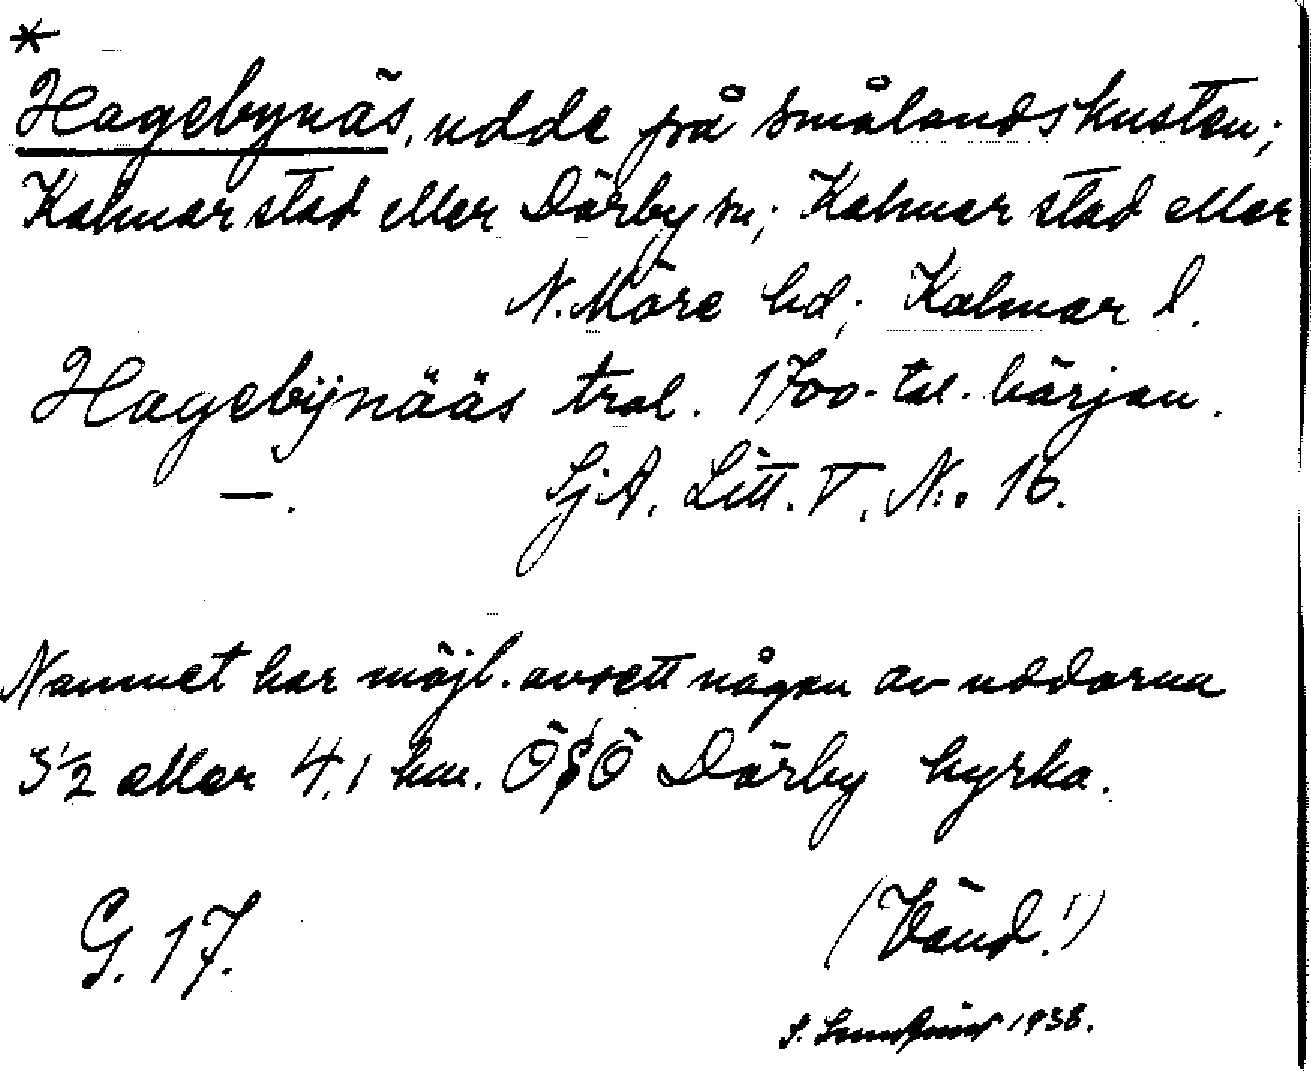 *
Hagebynäs, udde på Smålandskusten;
Kalmar stad eller Dörby sn; Kalmar stad eller
N. Möre hd; Kalmar l.
Hagebÿnääs trol. 1700-tal. början.
— . SjA. Litt. V. N:o 16.
Namnet har möjl. avsett någon av uddarna
3 1/2 eller 4,1 km. ÖSÖ Dörby kyrka.
G. 17. (Vänd!)
S. 1938.